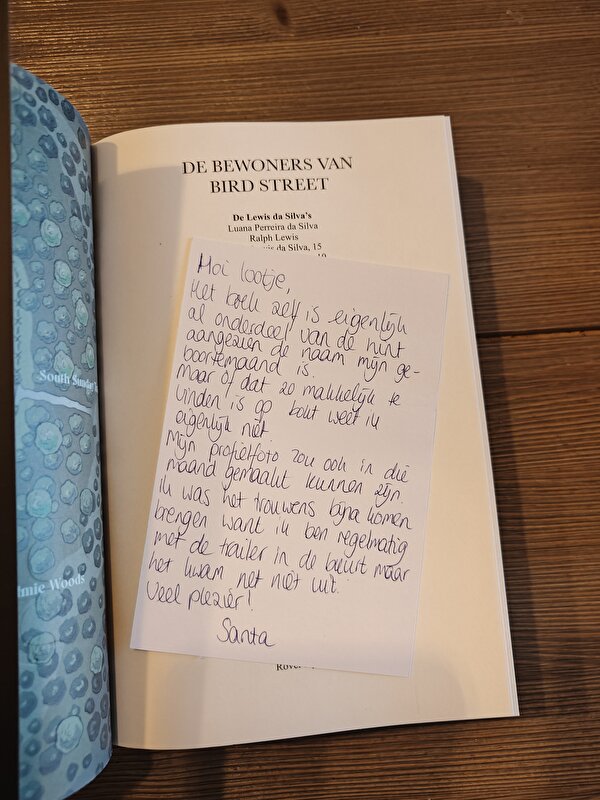 DE BEWONERS VAN
BIRD STREET
De Lewis da Silva's
Luana Perreira da Silva
Ralph Lewis
da Silva, 15
Moi lootje,
Het boek zelf is eigenlijk
al onderdeel van de hint
aangezien de naam mijn ge-
boortemaand is.
Maar of dat zo makkelijk te
vinden is op bokt weet ik
eigenlijk niet
Mijn profielfoto zou ook in die
maand gemaakt kunnen zijn.
Ik was het trouwens bijna komen
brengen want ik ben regelmatig
met de trailer in de buurt maar
het kwam net niet uit.
Veel plezier!
Santa
South Sunday
mie Woods